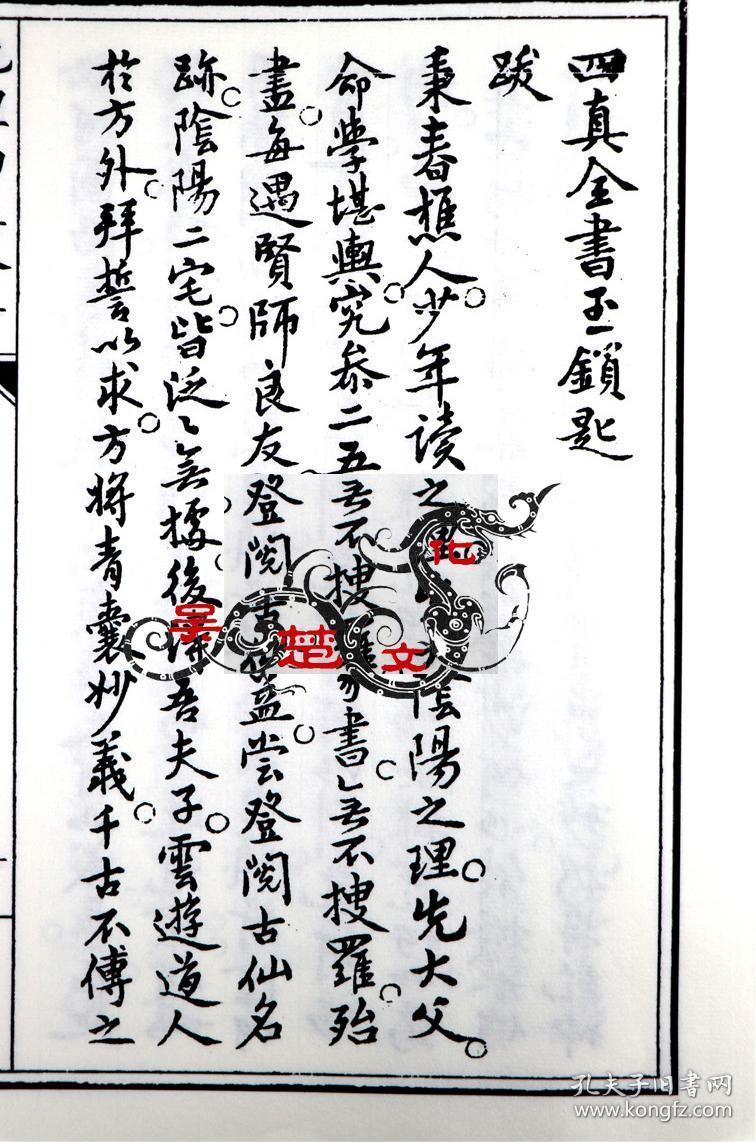 四真全書玉鎖匙
跋
秉春樵人。少年读之陰陽之理。先大父。
命學堪輿。究叅二五。無不搜書。無不搜羅。殆
盡。每遇賢師良友登閱古益。尝登閱古仙名
跡。陰陽二宅。皆泛〻無據。後吾夫子。雲遊道人
於方外。拜誓以求。方將青囊妙義。千古不傳之
吴楚文化
孔夫子旧书网
www.kongfz.com